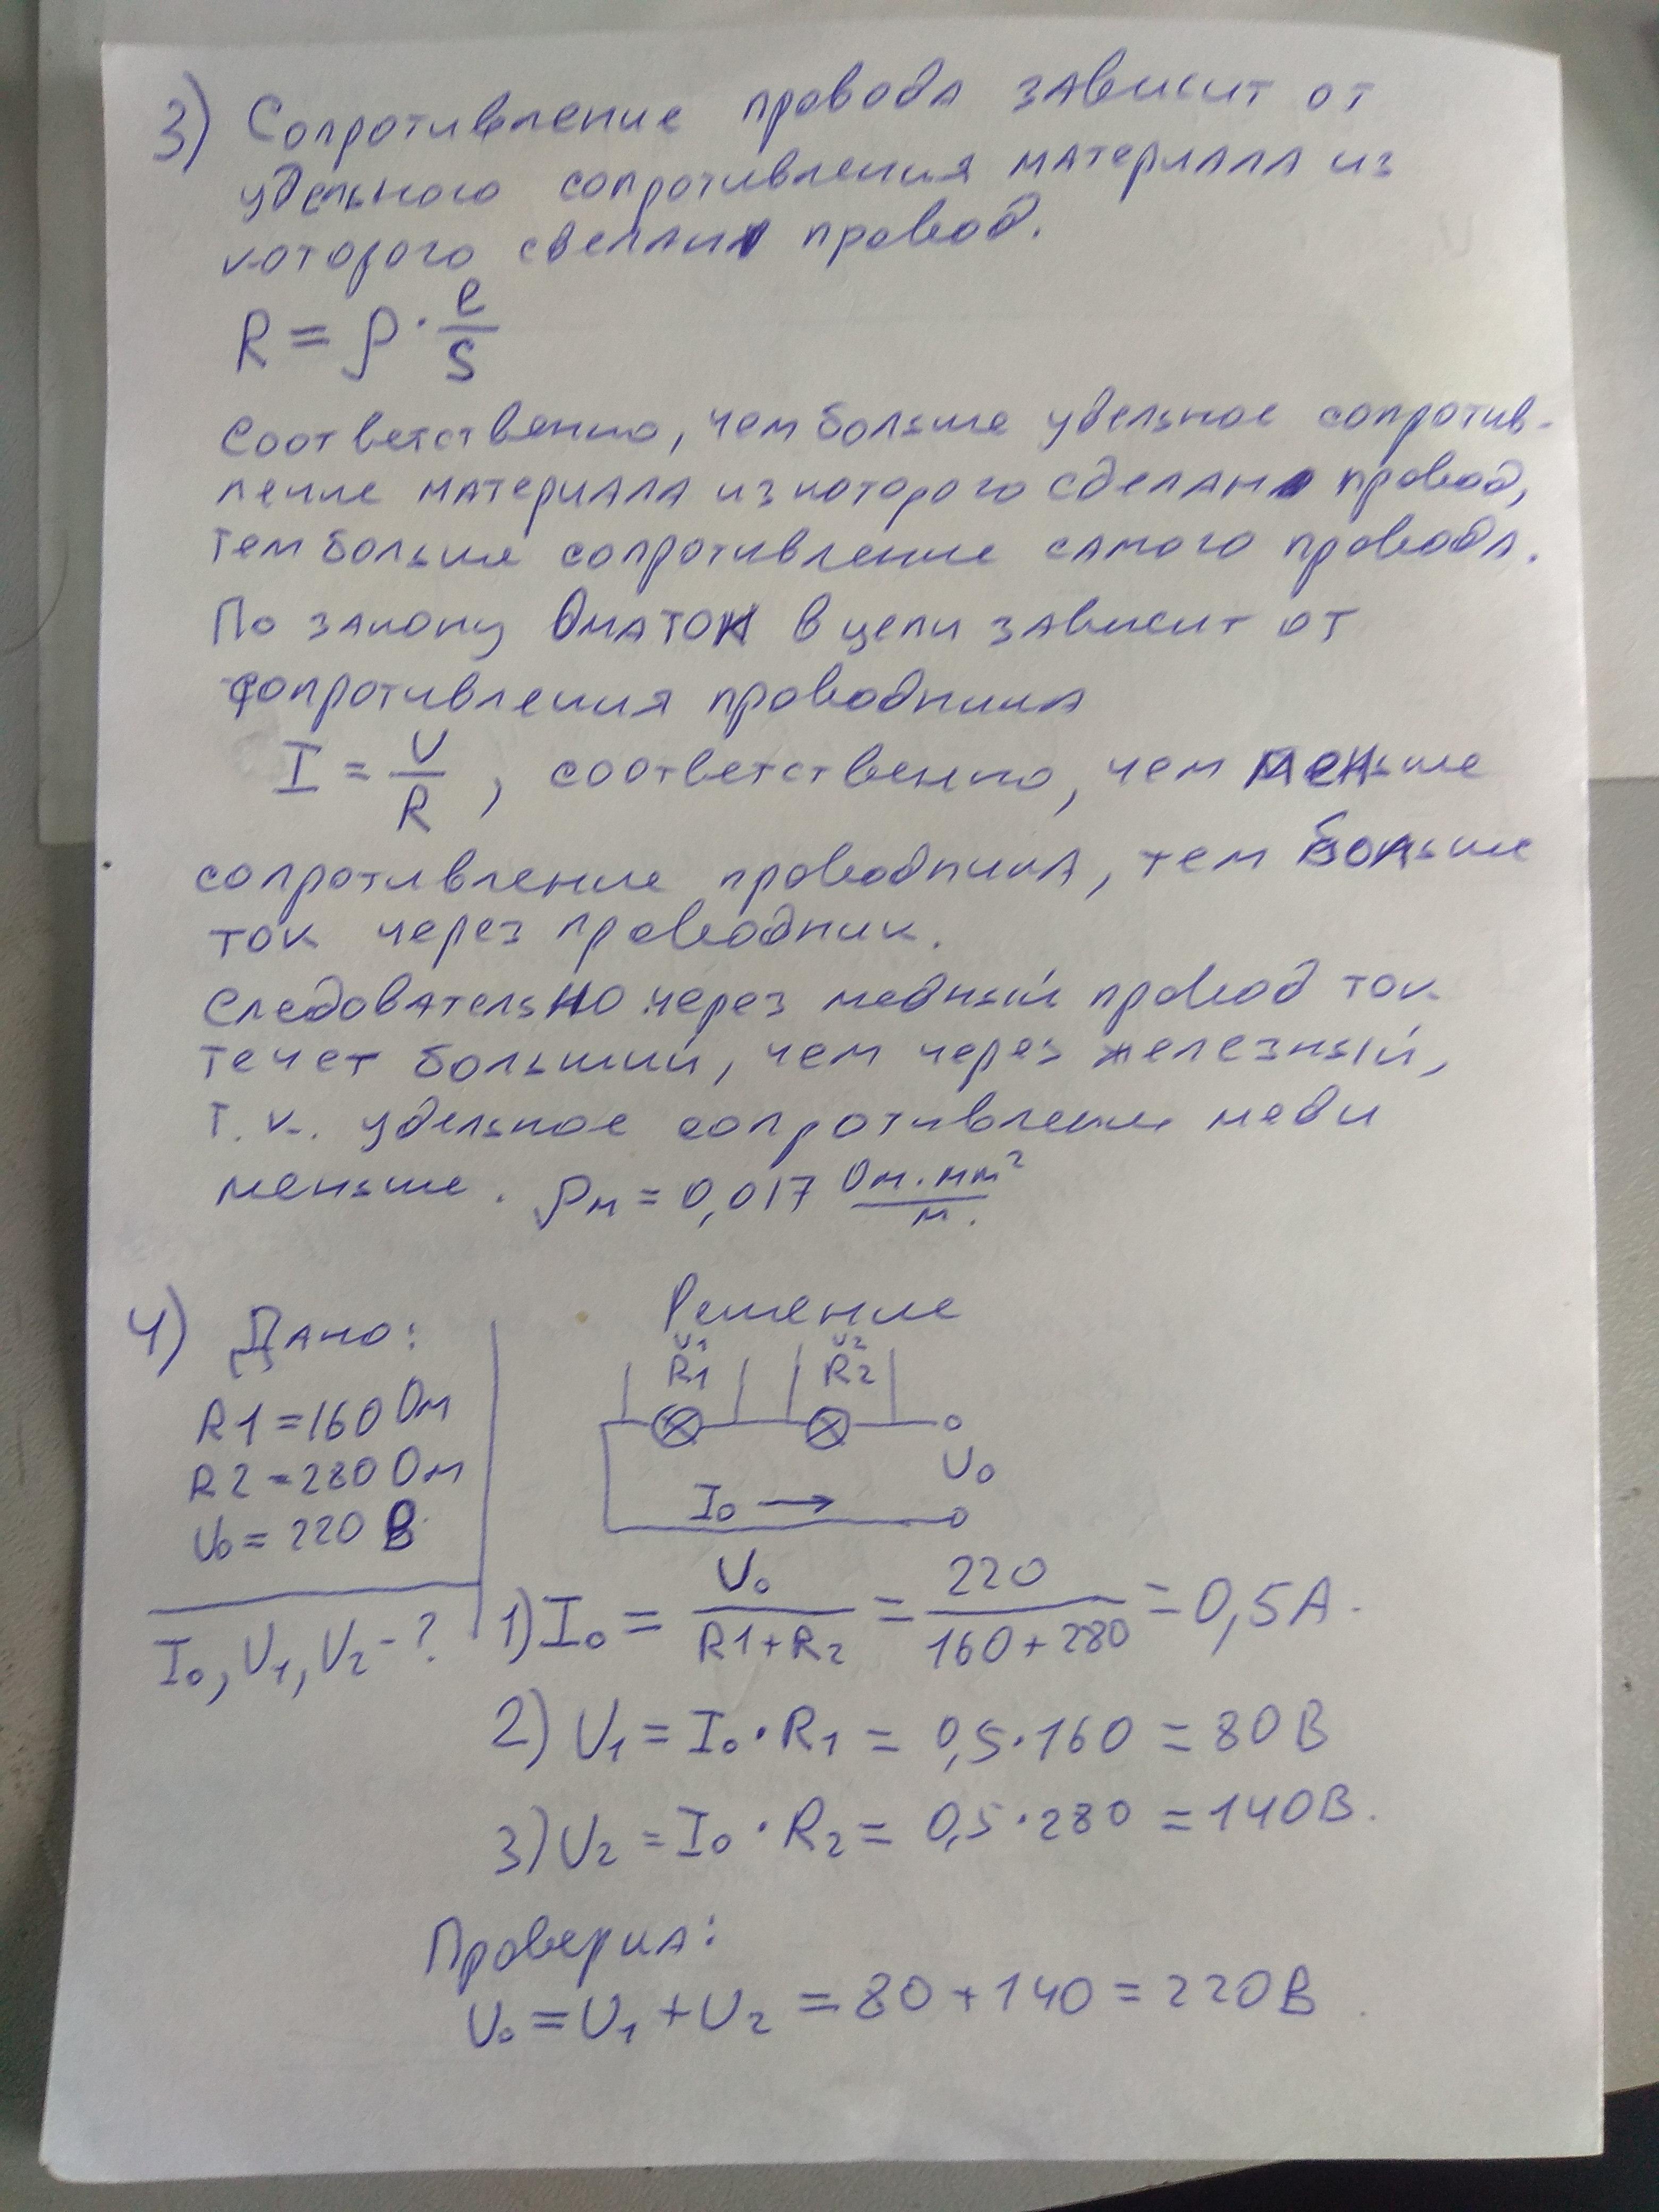 3) Сопротивление провода зависит от
удельного сопротивления материала из
которого сделан провод.
R = ρ · l/S
Соответственно, чем больше удельное сопротив-
ление материала из которого сделан провод,
тем больше сопротивление самого провода.
По закону Ома ток в цепи зависит от
сопротивления проводника
I = U/R , соответственно, чем меньше
сопротивление проводника, тем больше
ток через проводник.
Следовательно через медный провод ток
течет больший, чем через железный,
т.к. удельное сопротивление меди
меньше. ρм = 0,017 Ом·мм²/м.
4) Дано:
R1 = 160 Ом
R2 = 280 Ом
U0 = 220 В
I0, U1, U2 - ?
Решение
U1 U2
R1 R2
U0
I0 →
1) I0 = U0/(R1+R2) = 220/(160+280) = 0,5 А.
2) U1 = I0 · R1 = 0,5 · 160 = 80 В
3) U2 = I0 · R2 = 0,5 · 280 = 140 В.
Проверка:
U0 = U1 + U2 = 80 + 140 = 220 В